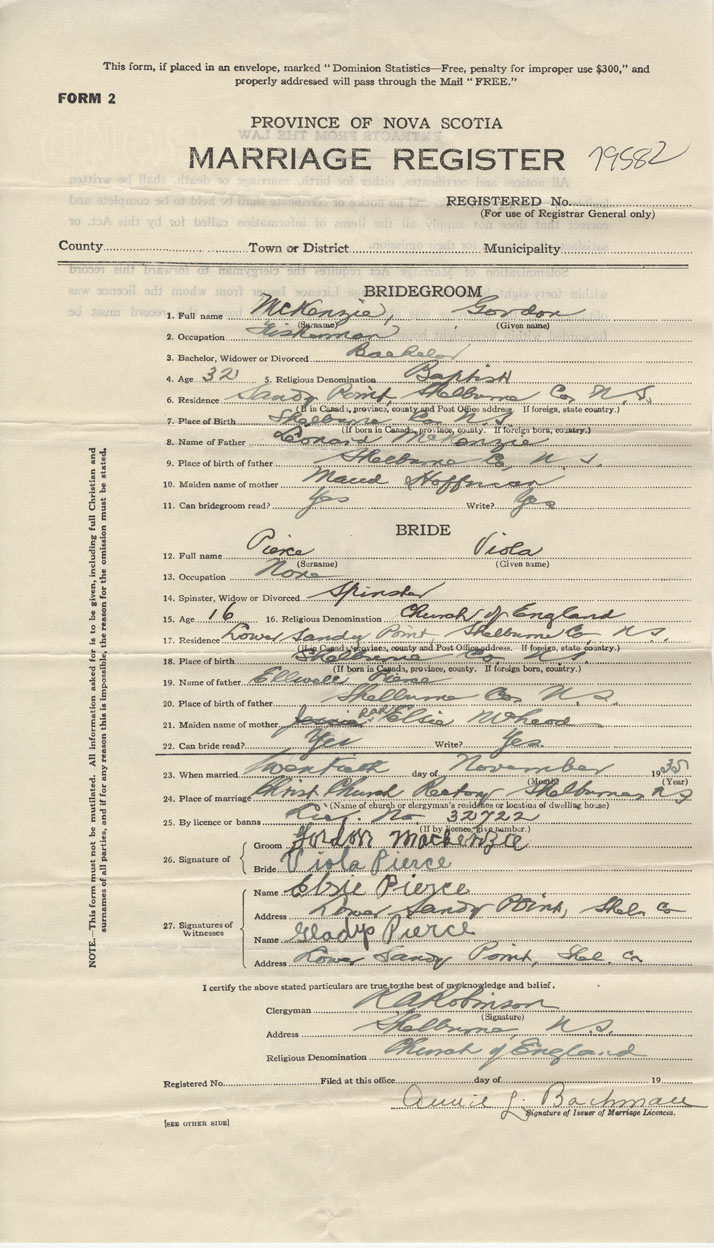 This form, if placed in an envelope, marked "Dominion Statistics—Free, penalty for improper use $300," and
properly addressed will pass through the Mail "FREE."
FORM 2
PROVINCE OF NOVA SCOTIA
MARRIAGE REGISTER 79582
REGISTERED No.
(For use of Registrar General only)
County Town or District Municipality
BRIDEGROOM
1. Full name McKenzie, Gordon
(Surname) (Given name)
2. Occupation Fisherman
3. Bachelor, Widower or Divorced Bachelor
4. Age 32 5. Religious Denomination Baptist
6. Residence Sandy Point Shelburne Co. N.S.
(If in Canada, province, county and Post Office address. If foreign, state country.)
7. Place of Birth Shelburne Co. N.S.
(If born in Canada, province, county. If foreign born, country.)
8. Name of Father Leonard McKenzie
9. Place of birth of father Shelburne Co, N.S.
10. Maiden name of mother Maud Hoffman
11. Can bridegroom read? Yes Write? Yes
BRIDE
12. Full name Pierce Viola
(Surname) (Given name)
13. Occupation None
14. Spinster, Widow or Divorced Spinster
15. Age 16 16. Religious Denomination Church of England
17. Residence Lower Sandy Point Shelburne Co, N.S.
(If in Canada, province, county and Post Office address. If foreign, state country.)
18. Place of birth Shelburne Co. N.S.
(If born in Canada, province, county. If foreign born, country.)
19. Name of father Ellwell Pierce
20. Place of birth of father Shelburne Co. N.S.
21. Maiden name of mother Jessie Elsie
22. Can bride read? Yes Write? Yes.
23. When married Twentieth day of November 1935
(Month) (Year)
24. Place of marriage Christ Church Rectory Shelburne, N.S
(Name of church or clergyman's residence or location of dwelling house)
25. By licence or banns Lic. No. 32722
(If by licence, give number.)
26. Signature of
Groom Gordon Mackenzie
Bride Viola Pierce
27. Signatures of Witnesses
Name Elsie Pierce
Address Lower Sandy Point, Shel. Co
Name Gladys Pierce
Address Lower Sandy Point, Shel. Co
I certify the above stated particulars are true to the best of my knowledge and belief.
Clergyman R A Robinson
(Signature)
Address Shelburne, N.S.
Religious Denomination Church of England
Registered No. Filed at this office day of 19
Annie L. Bachman
Signature of Issuer of Marriage Licences.
[SEE OTHER SIDE]
NOTE.—This form must not be mutilated. All information asked for is to be given, including full Christian and
surnames of all parties, and if for any reason this is impossible, the reason for the omission must be stated.